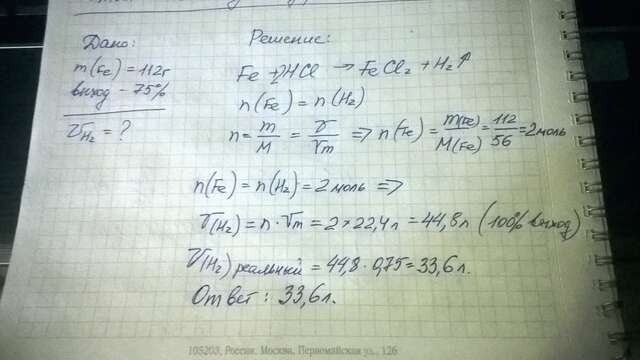 Дано:
m(Fe) = 112г
выход - 75%
V H₂ = ?
Решение:
Fe + 2HCl → FeCl₂ + H₂↑
n(Fe) = n(H₂)
n = m/M = V/Vm => n(Fe) = m(Fe)/M(Fe) = 112/56 = 2 моль
n(Fe) = n(H₂) = 2 моль =>
V(H₂) = n · Vm = 2 × 22,4 л = 44,8 л (100% выход)
V(H₂) реальный = 44,8 · 0,75 = 33,6 л.
Ответ: 33,6 л.
105203, Россия, Москва, Первомайская ул., 126